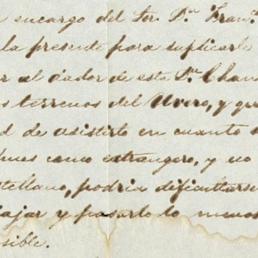 encargo del Sor. Dn. Fran.
la presente para suplicarle
el dador de esta Dn. Chan
terrenos del Uvero, y que
d de asistirlo en cuanto
pues como estrangero, y no
tellano, podria dificultarse
ajar y pasarlo lo menos
sible.